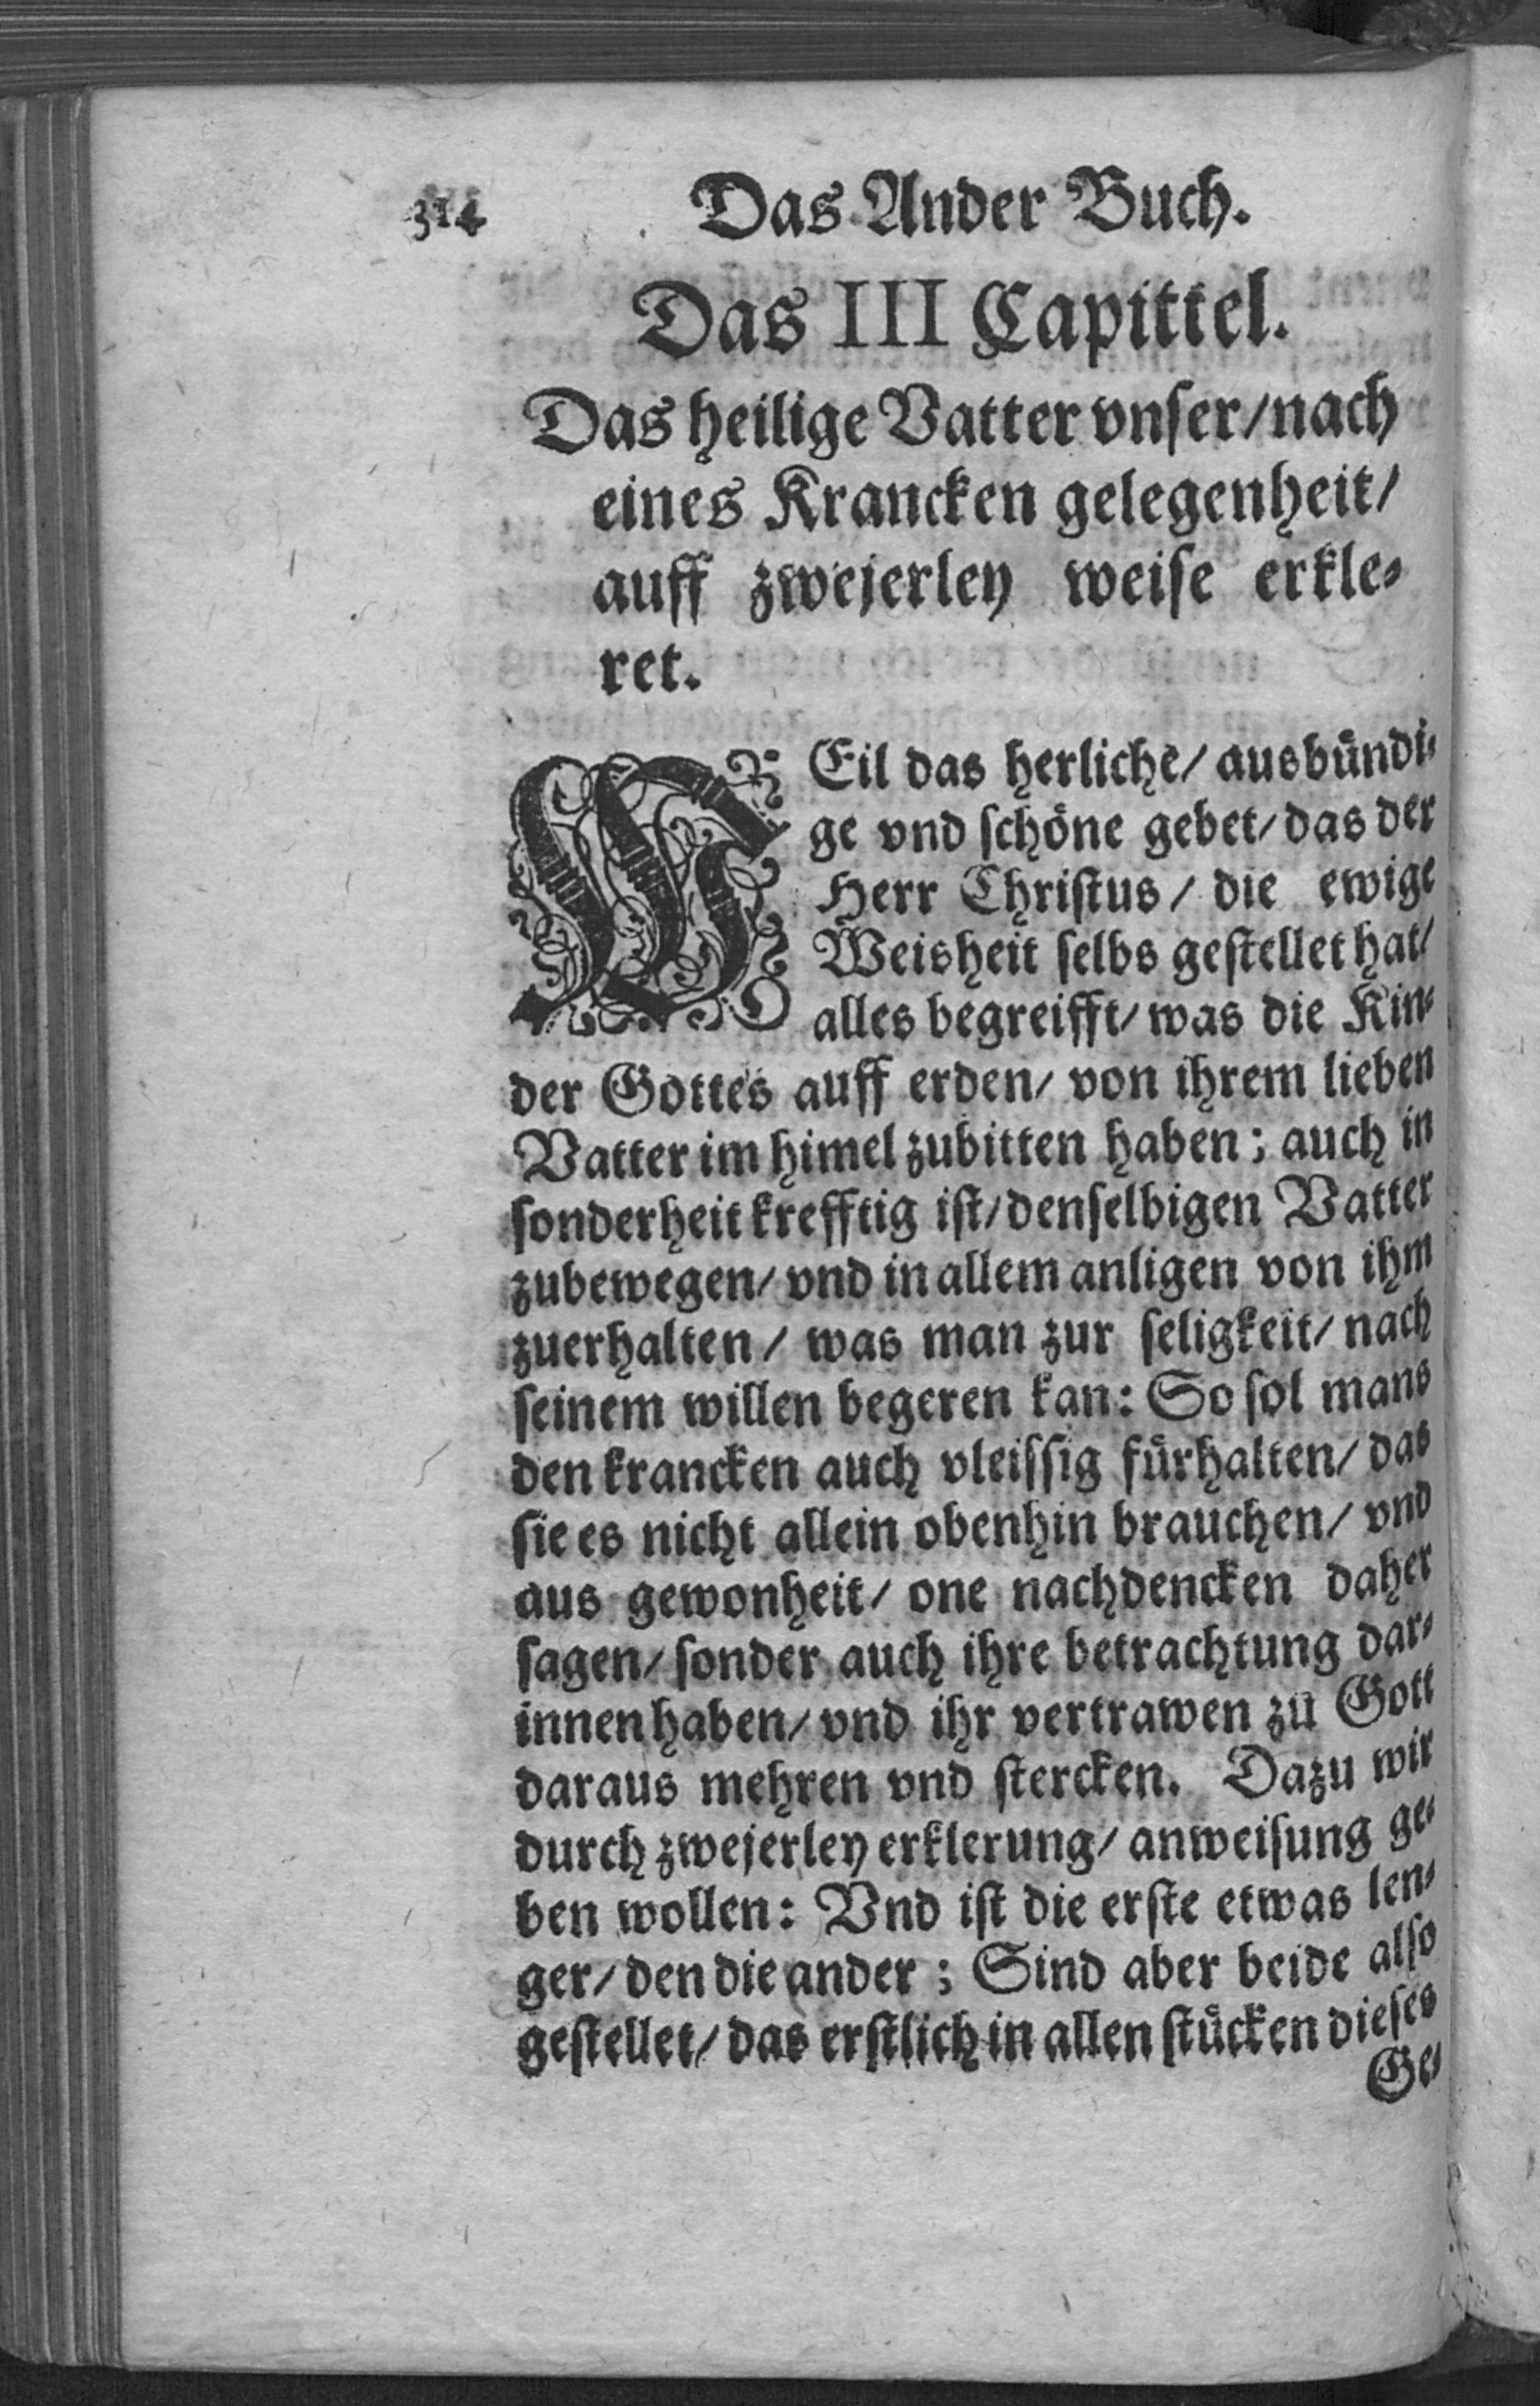 314 Das Ander Buch.
Das III Capittel.
Das heilige Vatter vnser/nach
eines Krancken gelegenheit/
auff zwejerley weise erkle-
ret.
WEil das herliche/ ausbündi-
ge vnd schöne gebet/ das der
Herr Christus/ die ewige
Weisheit selbs gestellet hat/
alles begreifft/ was die Kin-
der Gottes auff erden/ von ihrem lieben
Vatter im himel zubitten haben; auch in
sonderheit krefftig ist/ denselbigen Vatter
zubewegen/ vnd in allem anligen von ihm
zuerhalten/ was man zur seligkeit/ nach
seinem willen begeren kan: So sol mans
den krancken auch vleissig fürhalten/ das
sie es nicht allein obenhin brauchen/ vnd
aus gewonheit/ one nachdencken daher
sagen/ sonder auch ihre betrachtung dar-
innen haben/ vnd ihr vertrawen zu Gott
daraus mehren vnd stercken. Dazu wir
durch zwejerley erklerung/ anweisung ge-
ben wollen: Vnd ist die erste etwas len-
ger/ den die ander; Sind aber beide also
gestellet/ das erstlich in allen stücken dieses
Ge-